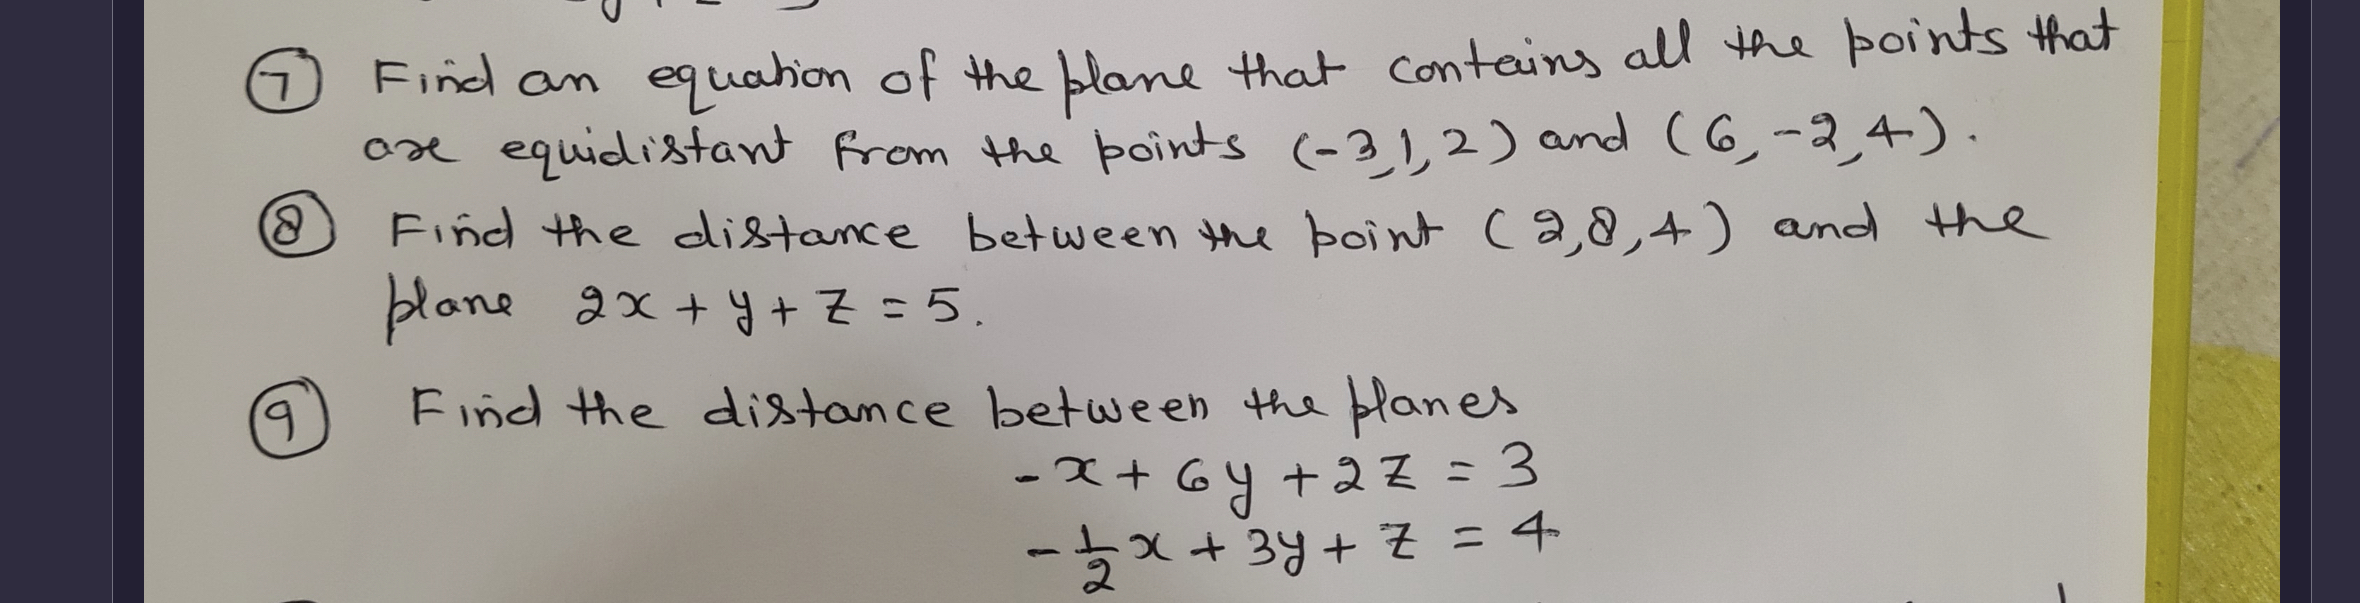 ⑦ Find an equation of the plane that contains all the points that
are equidistant from the points (-3,1,2) and (6,-2,4).
⑧ Find the distance between the point (2,8,4) and the
plane 2x + y + z = 5.
⑨ Find the distance between the planes
-x + 6y + 2z = 3
-1/2x + 3y + z = 4